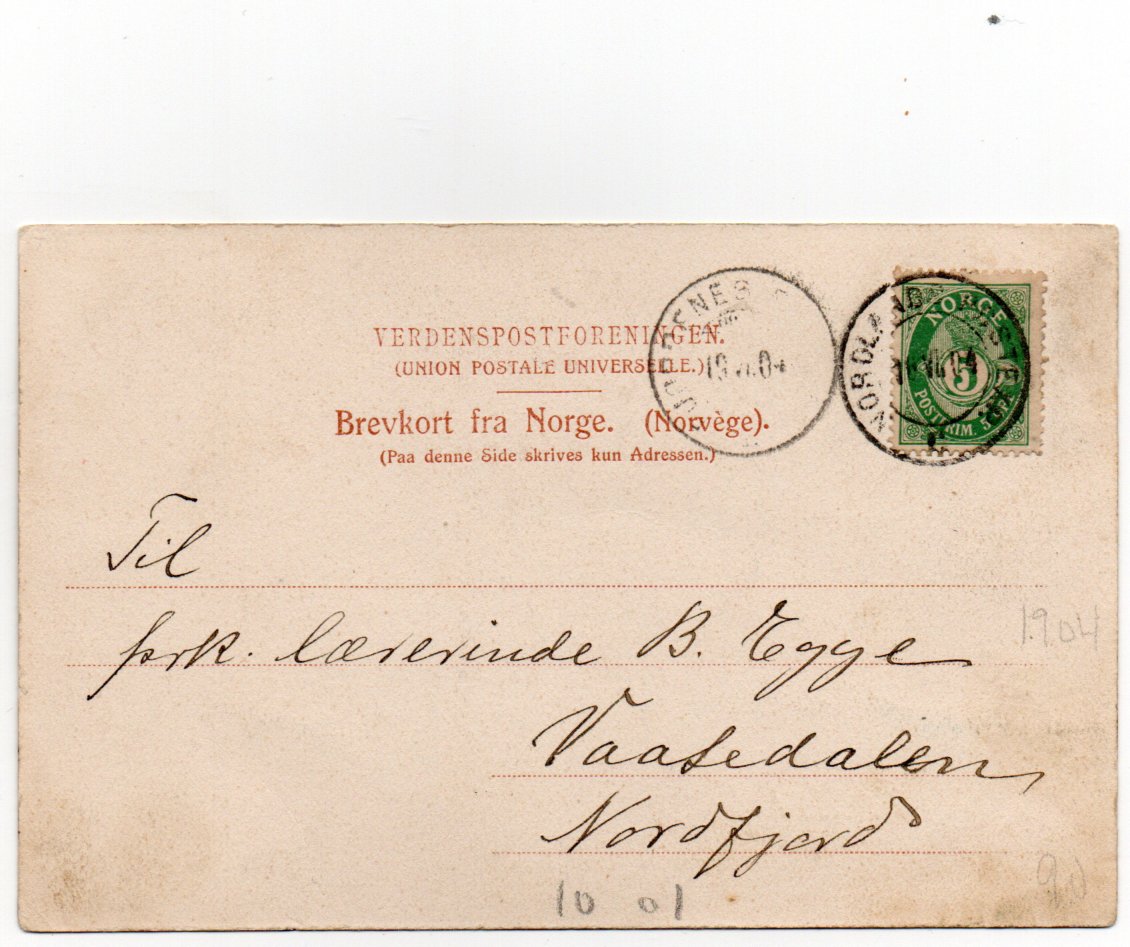 VERDENSPOSTFORENINGEN.
(UNION POSTALE UNIVERSELLE.)
Brevkort fra Norge. (Norvège).
(Paa denne Side skrives kun Adressen.)
NORGE
5
POSTFRIM. 5 ØRE
19 VI 04
VII 04
Til
frk. lærerinde B. Egge
Vaatedalen
Nordfjord
1904
90
10 01